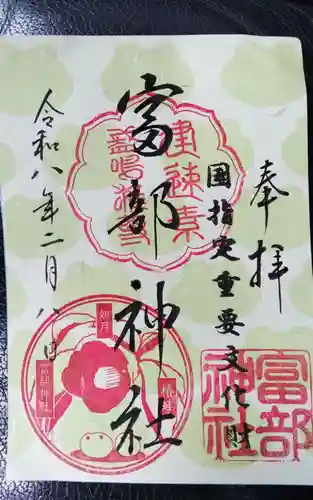 奉拝
国指定重要文化財
富部神社
令和八年二月八日
建速素
盞嗚神
如月
椿
富部神社
富部
神社